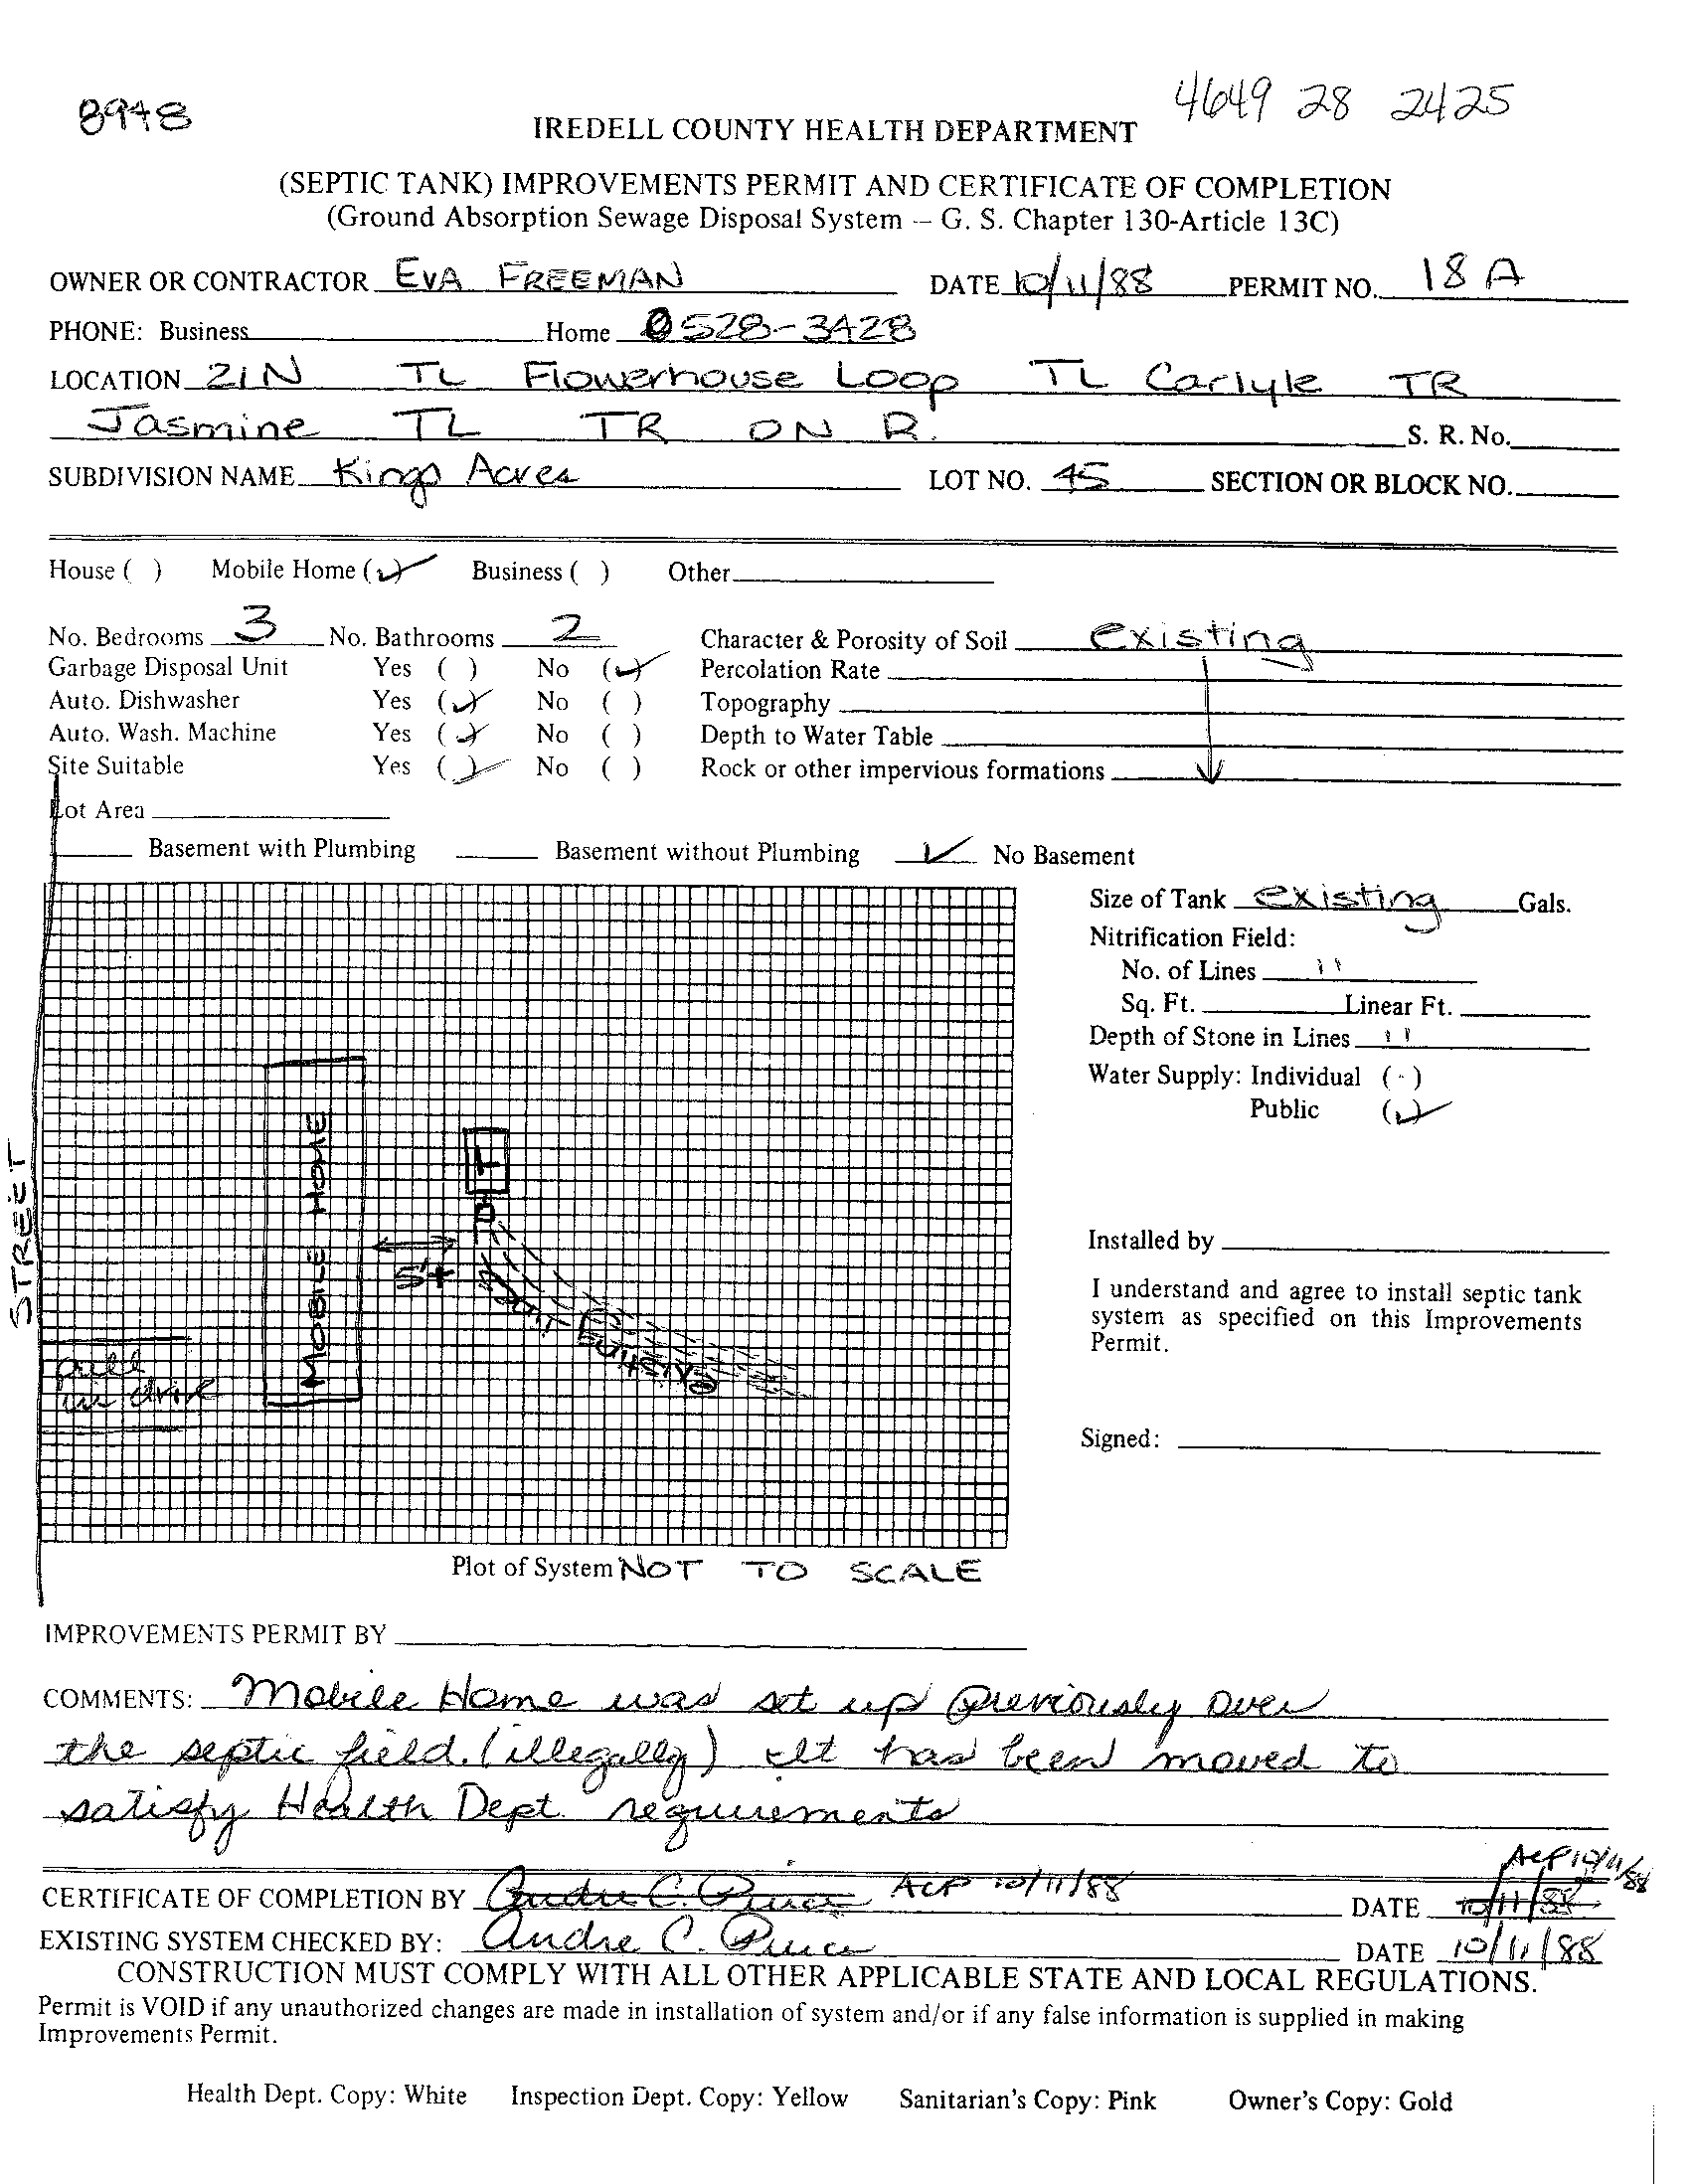 8948
4649 28 2425
IREDELL COUNTY HEALTH DEPARTMENT
(SEPTIC TANK) IMPROVEMENTS PERMIT AND CERTIFICATE OF COMPLETION
(Ground Absorption Sewage Disposal System – G. S. Chapter 130-Article 13C)
OWNER OR CONTRACTOR EVA FREEMAN DATE 10/11/88 PERMIT NO. 18 A
PHONE: Business Home 528-3428
LOCATION 21N TL Flowerhouse Loop TL Carlyle TR
Jasmine TL TR ON R. S. R. No.
SUBDIVISION NAME Kings Acres LOT NO. 45 SECTION OR BLOCK NO.
House ( ) Mobile Home (✓) Business ( ) Other
No. Bedrooms 3 No. Bathrooms 2 Character & Porosity of Soil existing
Garbage Disposal Unit Yes ( ) No (✓) Percolation Rate
Auto. Dishwasher Yes (✓) No ( ) Topography
Auto. Wash. Machine Yes (✓) No ( ) Depth to Water Table
Site Suitable Yes (✓) No ( ) Rock or other impervious formations
Lot Area
Basement with Plumbing Basement without Plumbing ✓ No Basement
Size of Tank existing Gals.
Nitrification Field:
No. of Lines "
Sq. Ft. Linear Ft.
Depth of Stone in Lines "
Water Supply: Individual ( )
Public (✓)
STREET
MOBILE HOME
T
D
5'+
EXISTING
drive
Installed by
I understand and agree to install septic tank
system as specified on this Improvements
Permit.
Signed:
Plot of System NOT TO SCALE
IMPROVEMENTS PERMIT BY
COMMENTS: Mobile Home was set up previously over
the septic field. (illegally) It has been moved to
satisfy Health Dept. requirements
ACP 10/11/88
CERTIFICATE OF COMPLETION BY Andre C. Pierce ACP 10/11/88 DATE 10/11/88
EXISTING SYSTEM CHECKED BY: Andre C. Pierce DATE 10/11/88
CONSTRUCTION MUST COMPLY WITH ALL OTHER APPLICABLE STATE AND LOCAL REGULATIONS.
Permit is VOID if any unauthorized changes are made in installation of system and/or if any false information is supplied in making
Improvements Permit.
Health Dept. Copy: White Inspection Dept. Copy: Yellow Sanitarian's Copy: Pink Owner's Copy: Gold